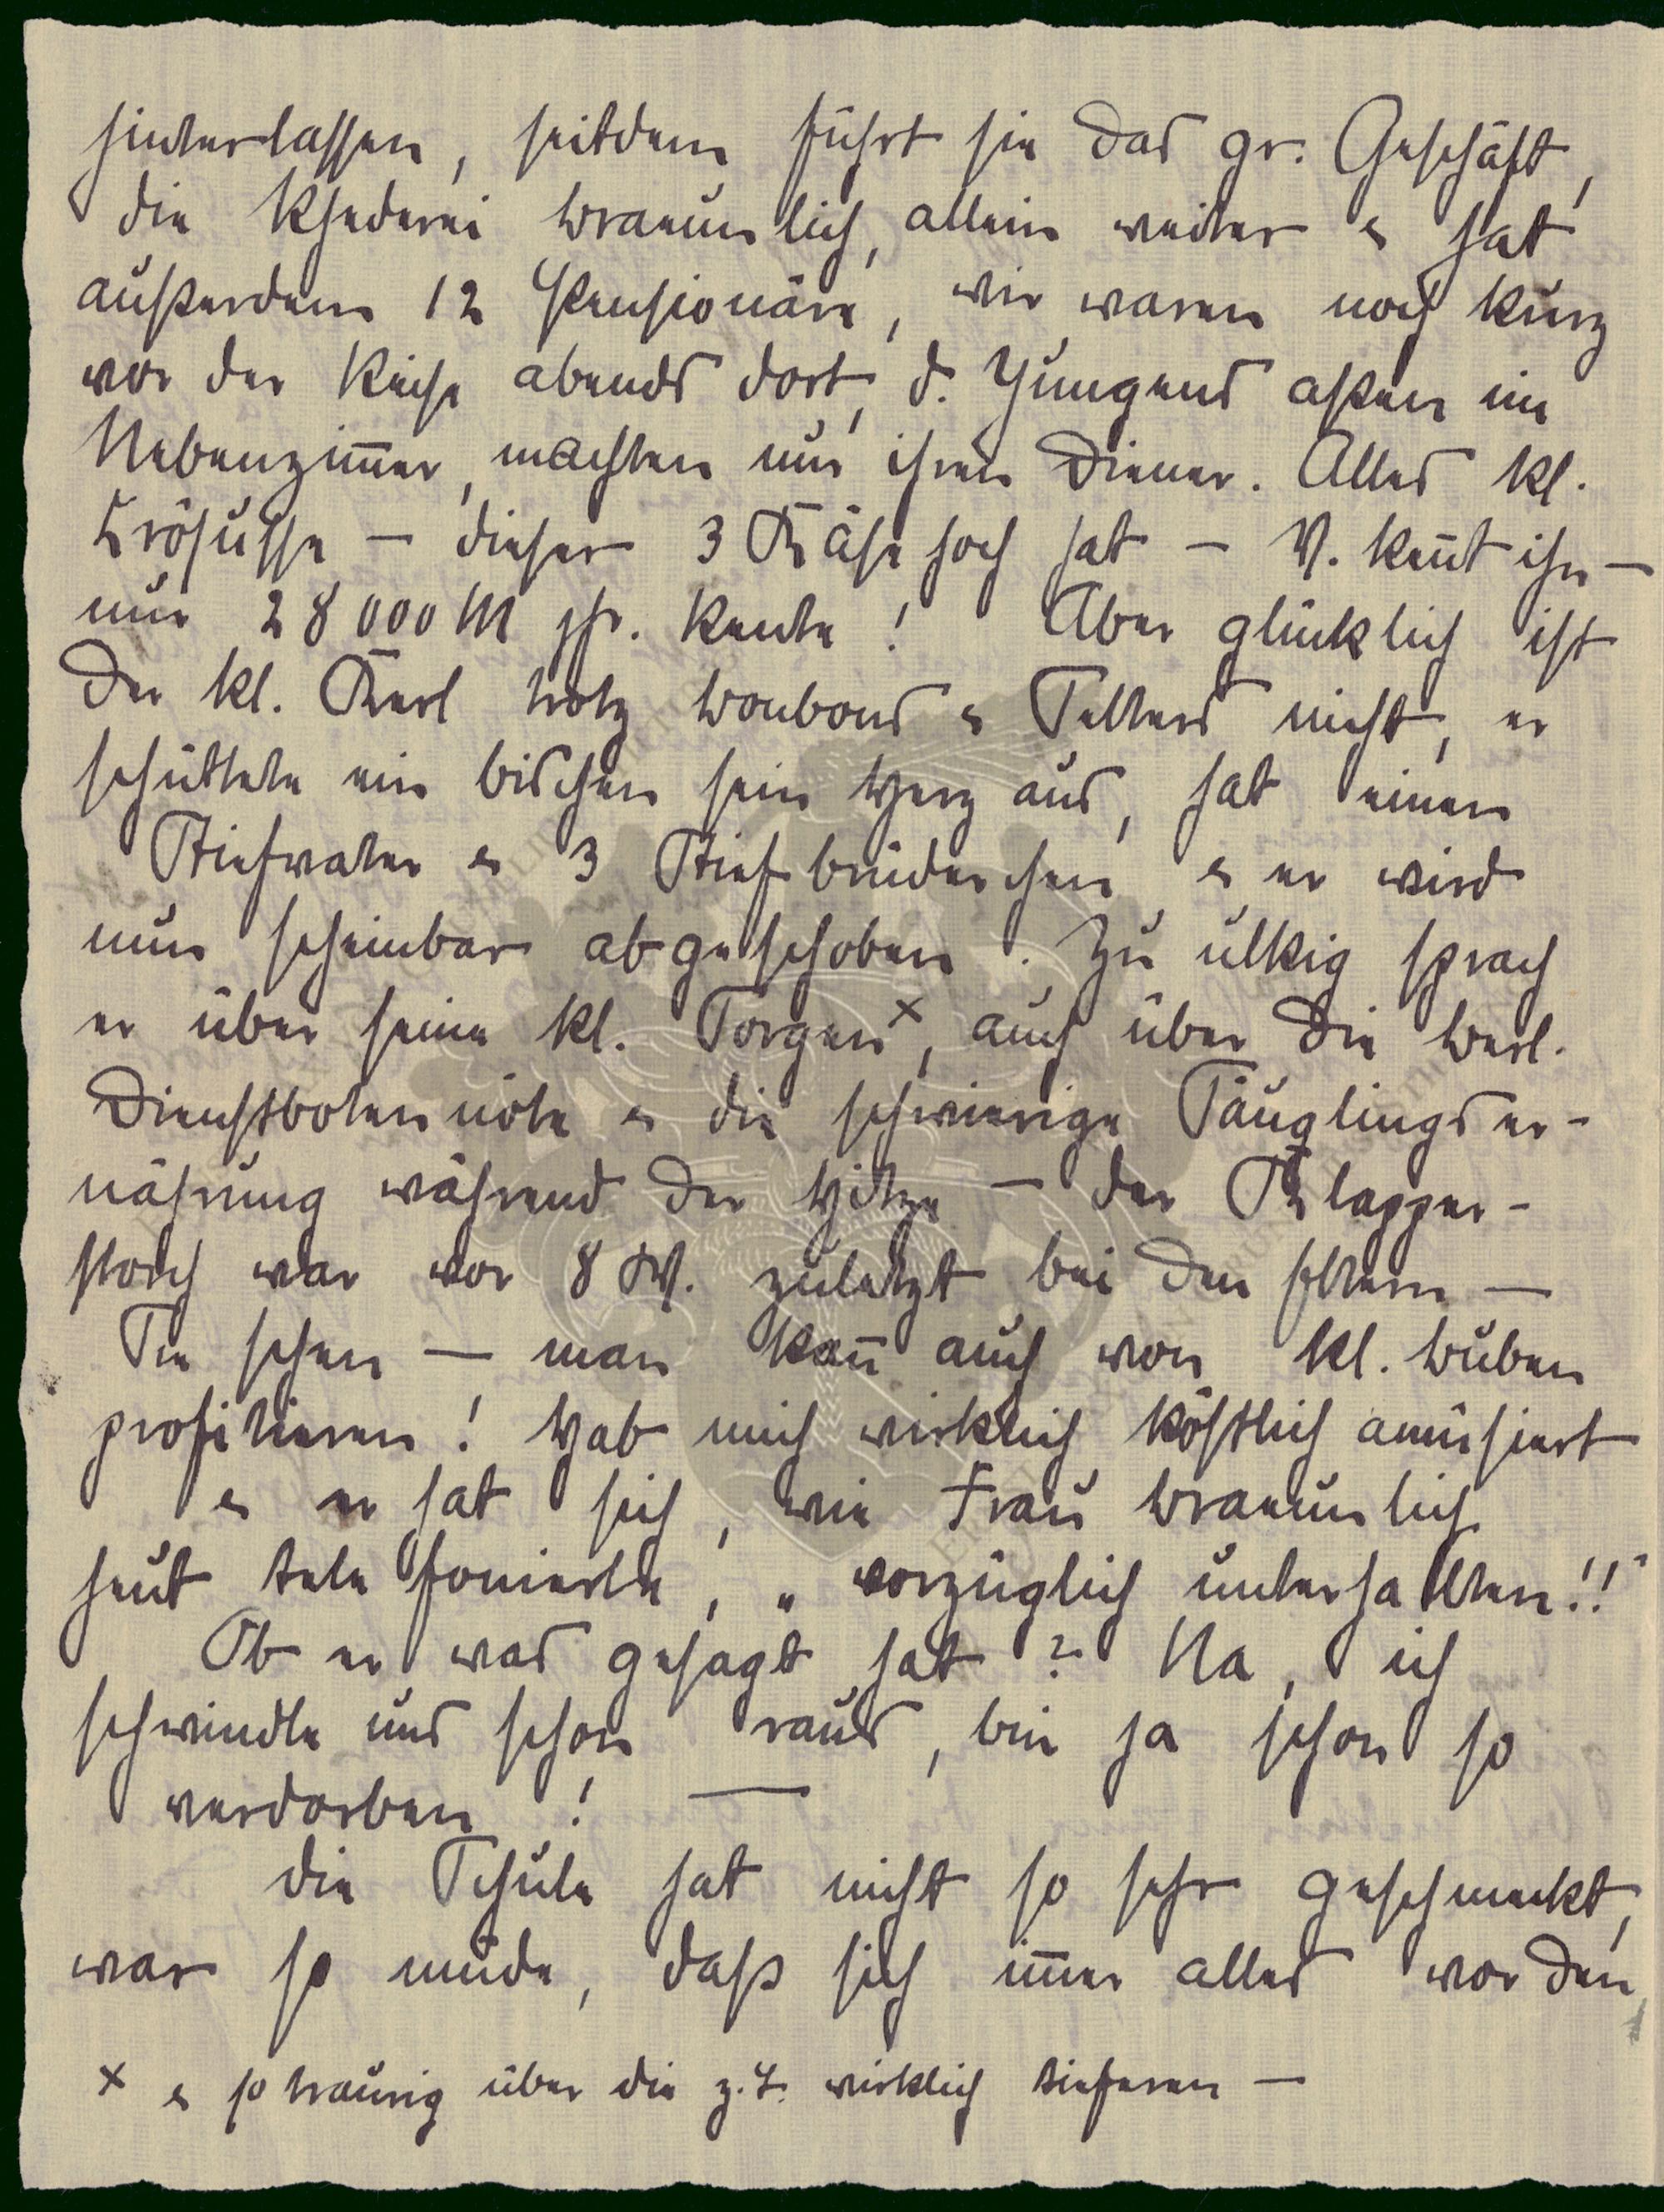 hinterlassen, seitdem führt sie das gr. Geschäft,
die Rhederei Braeunlich, allein weiter & hat
außerdem 12 Pensionäre, wir waren noch kurz
vor der Reise abends dort, d. Jungens aßen im
Nebenzim̅er, machten nur ihren Diener. Alles kl.
Krösusse – dieser 3 Käse hoch hat – V. ken̅t ihn –
nur 28000 M jhr. Rente! Aber glücklich ist
der kl. Kerl trotz Bonbons & Sekters nicht, er
schüttete ein bischen sein Herz aus, hat einen
Stiefvater & 3 Stiefbrüderchen & er wird
nun scheinbar abgeschoben. Zu ulkig sprach
er über seine kl. Sorgen ×, auch über die Berl.
Dienstbotennöte & die schwierige Säuglingser-
nährung während der Hitze – der Klapper-
storch war vor 8 W. zuletzt bei den Eltern –
Sie sehen – man kan̅ auch von kl. Buben
profitieren! Hab mich wirklich köstlich amüsiert
& er hat sich, wie Frau Braeunlich
heut telefonierte, „vorzüglich unterhalten!!"
Ob er was gesagt hat? Na, ich
schwindle uns schon raus, bin ja schon so
verdorben! —
Die Schule hat nicht so sehr geschmeckt,
war so müde, daß sich im̅er alles vor den
× & so traurig über die z.T. wirklich tieferen –